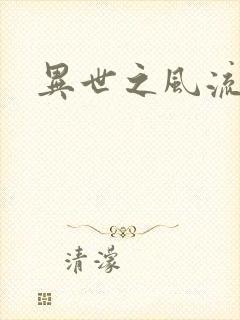 異世之風流
清濛